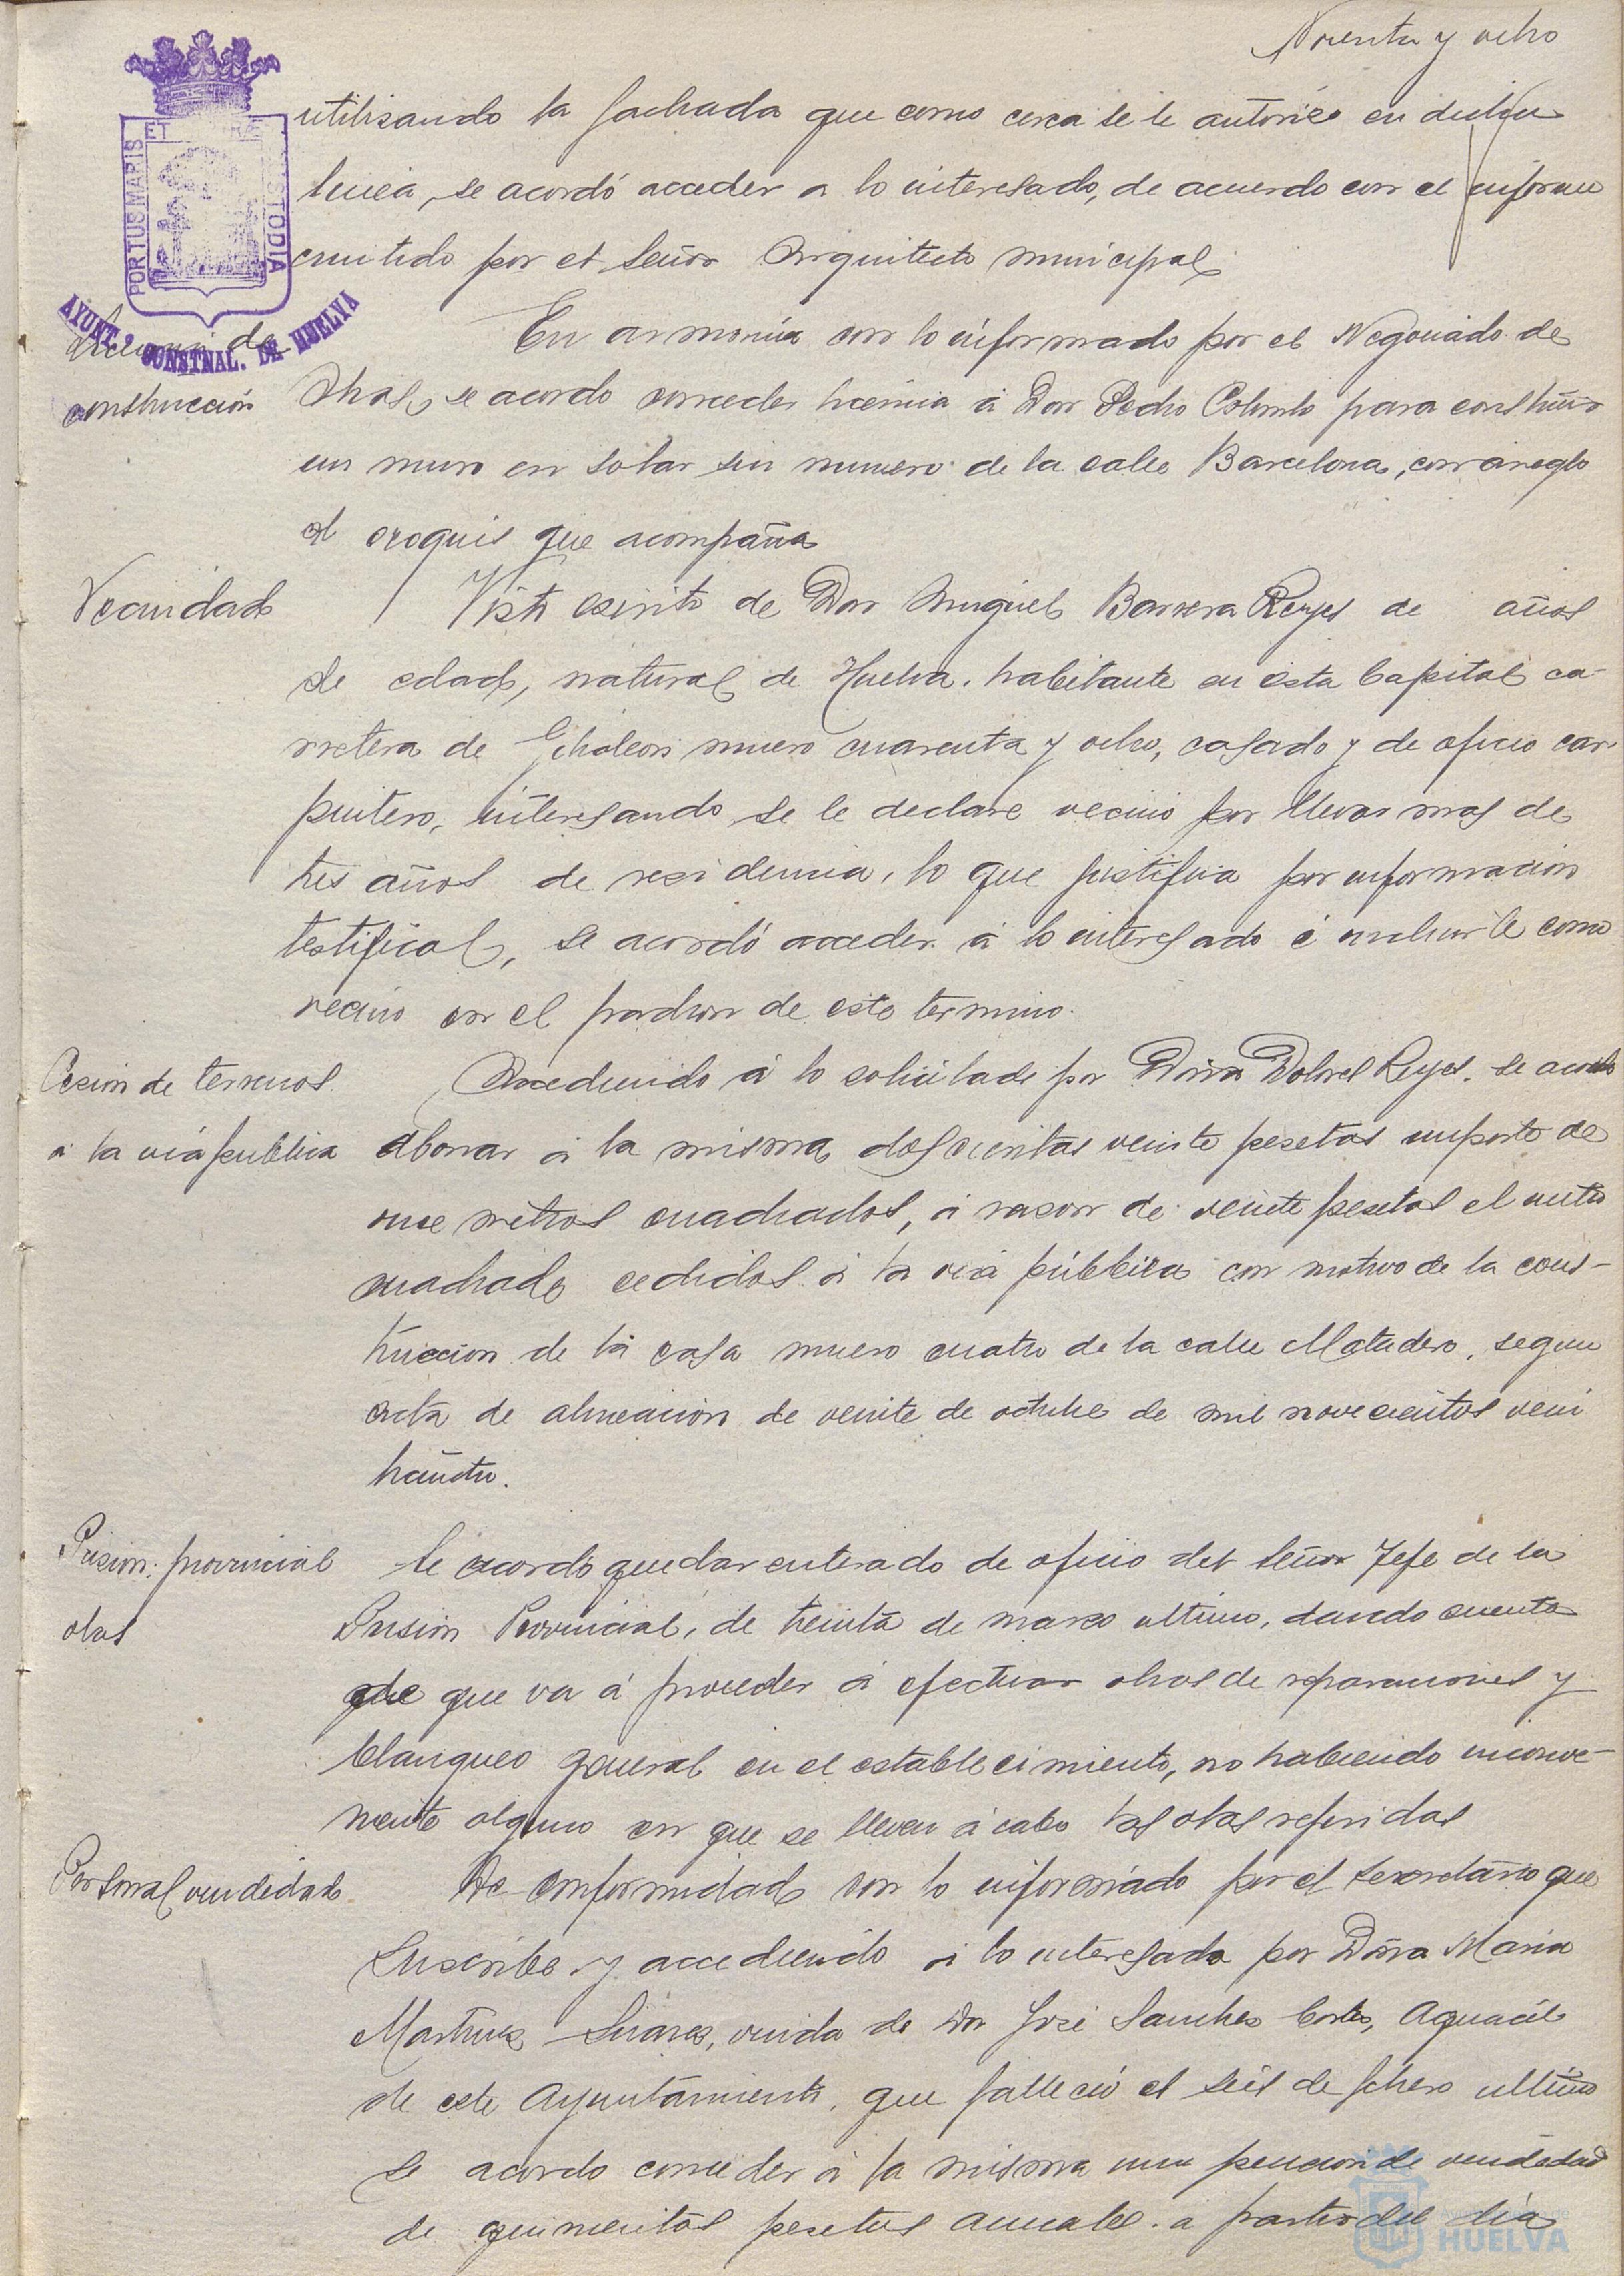 Noventa y ocho
PORTUS MARIS ET TERRAE CUSTODIA
AYUNT.º CONSTNAL. DE HUELVA
utilizando la fachada que como cerca se le autorizó en dicha
linea, se acordó acceder a lo interesado, de acuerdo con el informe
emitido por el Señor Arquitecto municipal
Licencia de
construcción
En armonia con lo informado por el Negociado de
Obras, se acordo conceder licencia á Don Pedro Colombo para construir
un muro en solar sin numero de la calle Barcelona, con arreglo
al croquis que acompaña
Vecindad
Visto escrito de Don Miguel Barrera Reyes de años
de edad, natural de Huelva, habitante en esta Capital ca-
rretera de Gibraleon numero cuarenta y ocho, casado y de oficio car-
pintero, interesando se le declare vecino por llevar mas de
tres años de residencia, lo que justifica por informacion
testifical, se acordó acceder á lo interesado é incluirle como
vecino en el padron de este termino.
Cesion de terrenos
á la via publica
Accediendo á lo solicitado por Doña Dolores Reyes, se acordo
abonar á la misma doscientas veinte pesetas importe de
once metros cuadrados, á razon de veinte pesetas el metro
cuadrado cedidos á la via pública con motivo de la cons-
truccion de la casa numero cuatro de la calle Matadero, segun
acta de alineacion de veinte de octubre de mil novecientos vein
ticuatro.
Prision provincial
obras
Se acordo quedar enterado de oficio del Señor Jefe de la
Prision Provincial, de treinta de marzo ultimo, dando cuenta
de que va á proceder á efectuar obras de reparaciones y
blanqueo general en el establecimiento, no habiendo inconve-
niente alguno en que se lleven á cabo las obras referidas
Personal viudedad
De conformidad con lo informado por el Secretario que
suscribe y accediendo á lo interesado por Doña Maria
Martinez Suarez, viuda de Don José Sanchez Cortes, Aguacil
de este Ayuntamiento, que falleció el seis de febrero ultimo
se acordo conceder á la misma una pencion de viudedad
de quinientas pesetas anuales a partir del dia
HUELVA